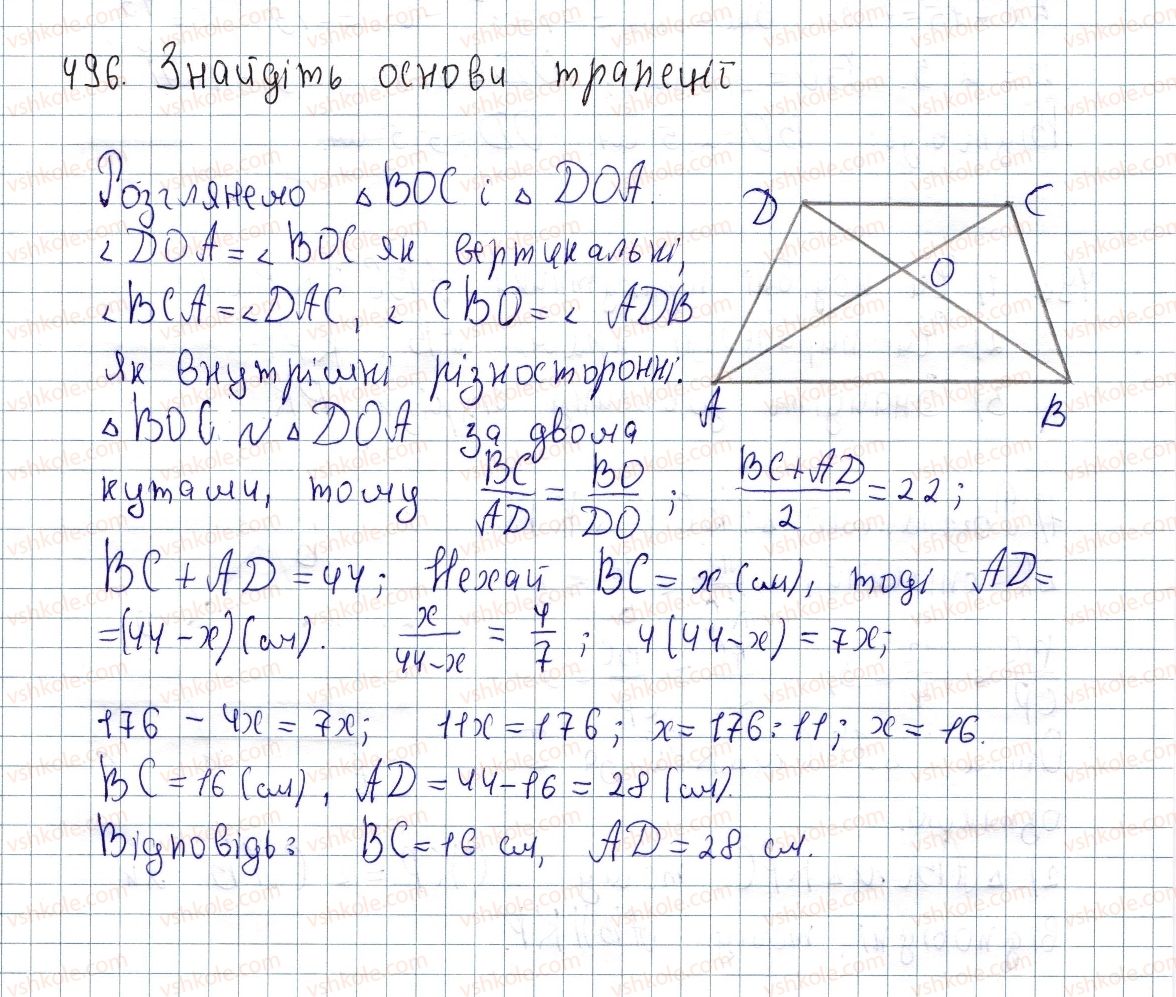 496. Знайдіть основи трапеції
Розглянемо △BOC і △DOA.
∠DOA=∠BOC як вертикальні,
∠BCA=∠DAC, ∠CBO=∠ADB
як внутрішні різносторонні.
△BOC ~ △DOA за двома
кутами, тому BC/AD = BO/DO; (BC+AD)/2 = 22;
BC+AD=44; Нехай BC=x (см), тоді AD=
=(44-x)(см). x/(44-x) = 4/7; 4(44-x)=7x;
176-4x=7x; 11x=176; x=176:11; x=16.
BC=16 (см), AD=44-16=28 (см).
Відповідь: BC=16 см, AD=28 см.
D
C
O
A
B
vshkole.com